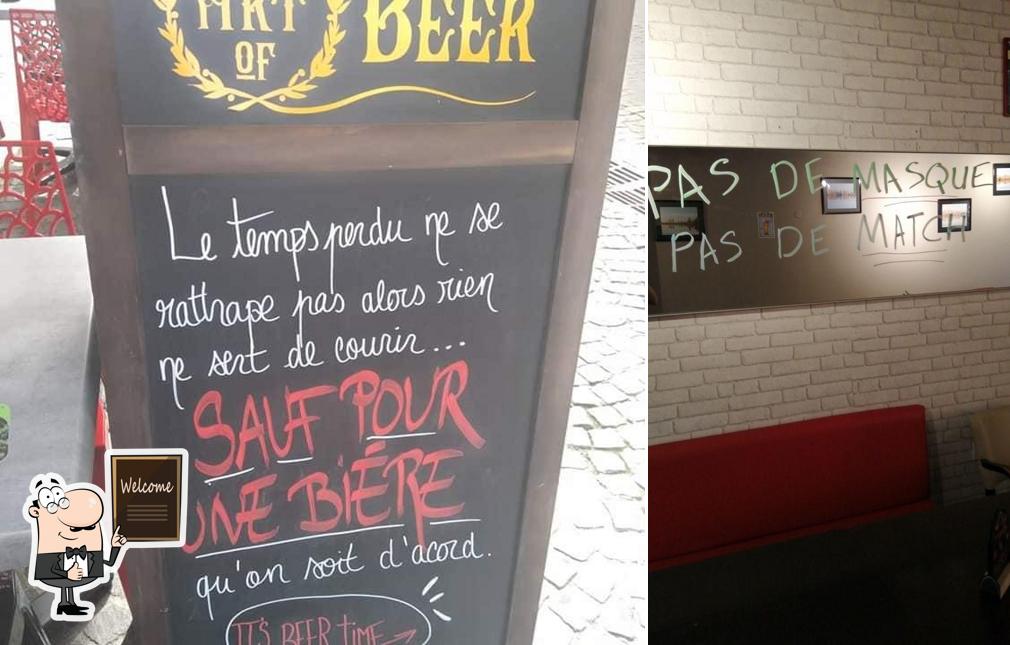 ART
OF
BEER
Le temps perdu ne se
rattrape pas alors rien
ne sert de courir...
SAUF POUR
UNE BIÈRE
qu'on soit d'acord.
IT'S BEER TIME
Welcome
PAS DE MASQUE
PAS DE MATCH